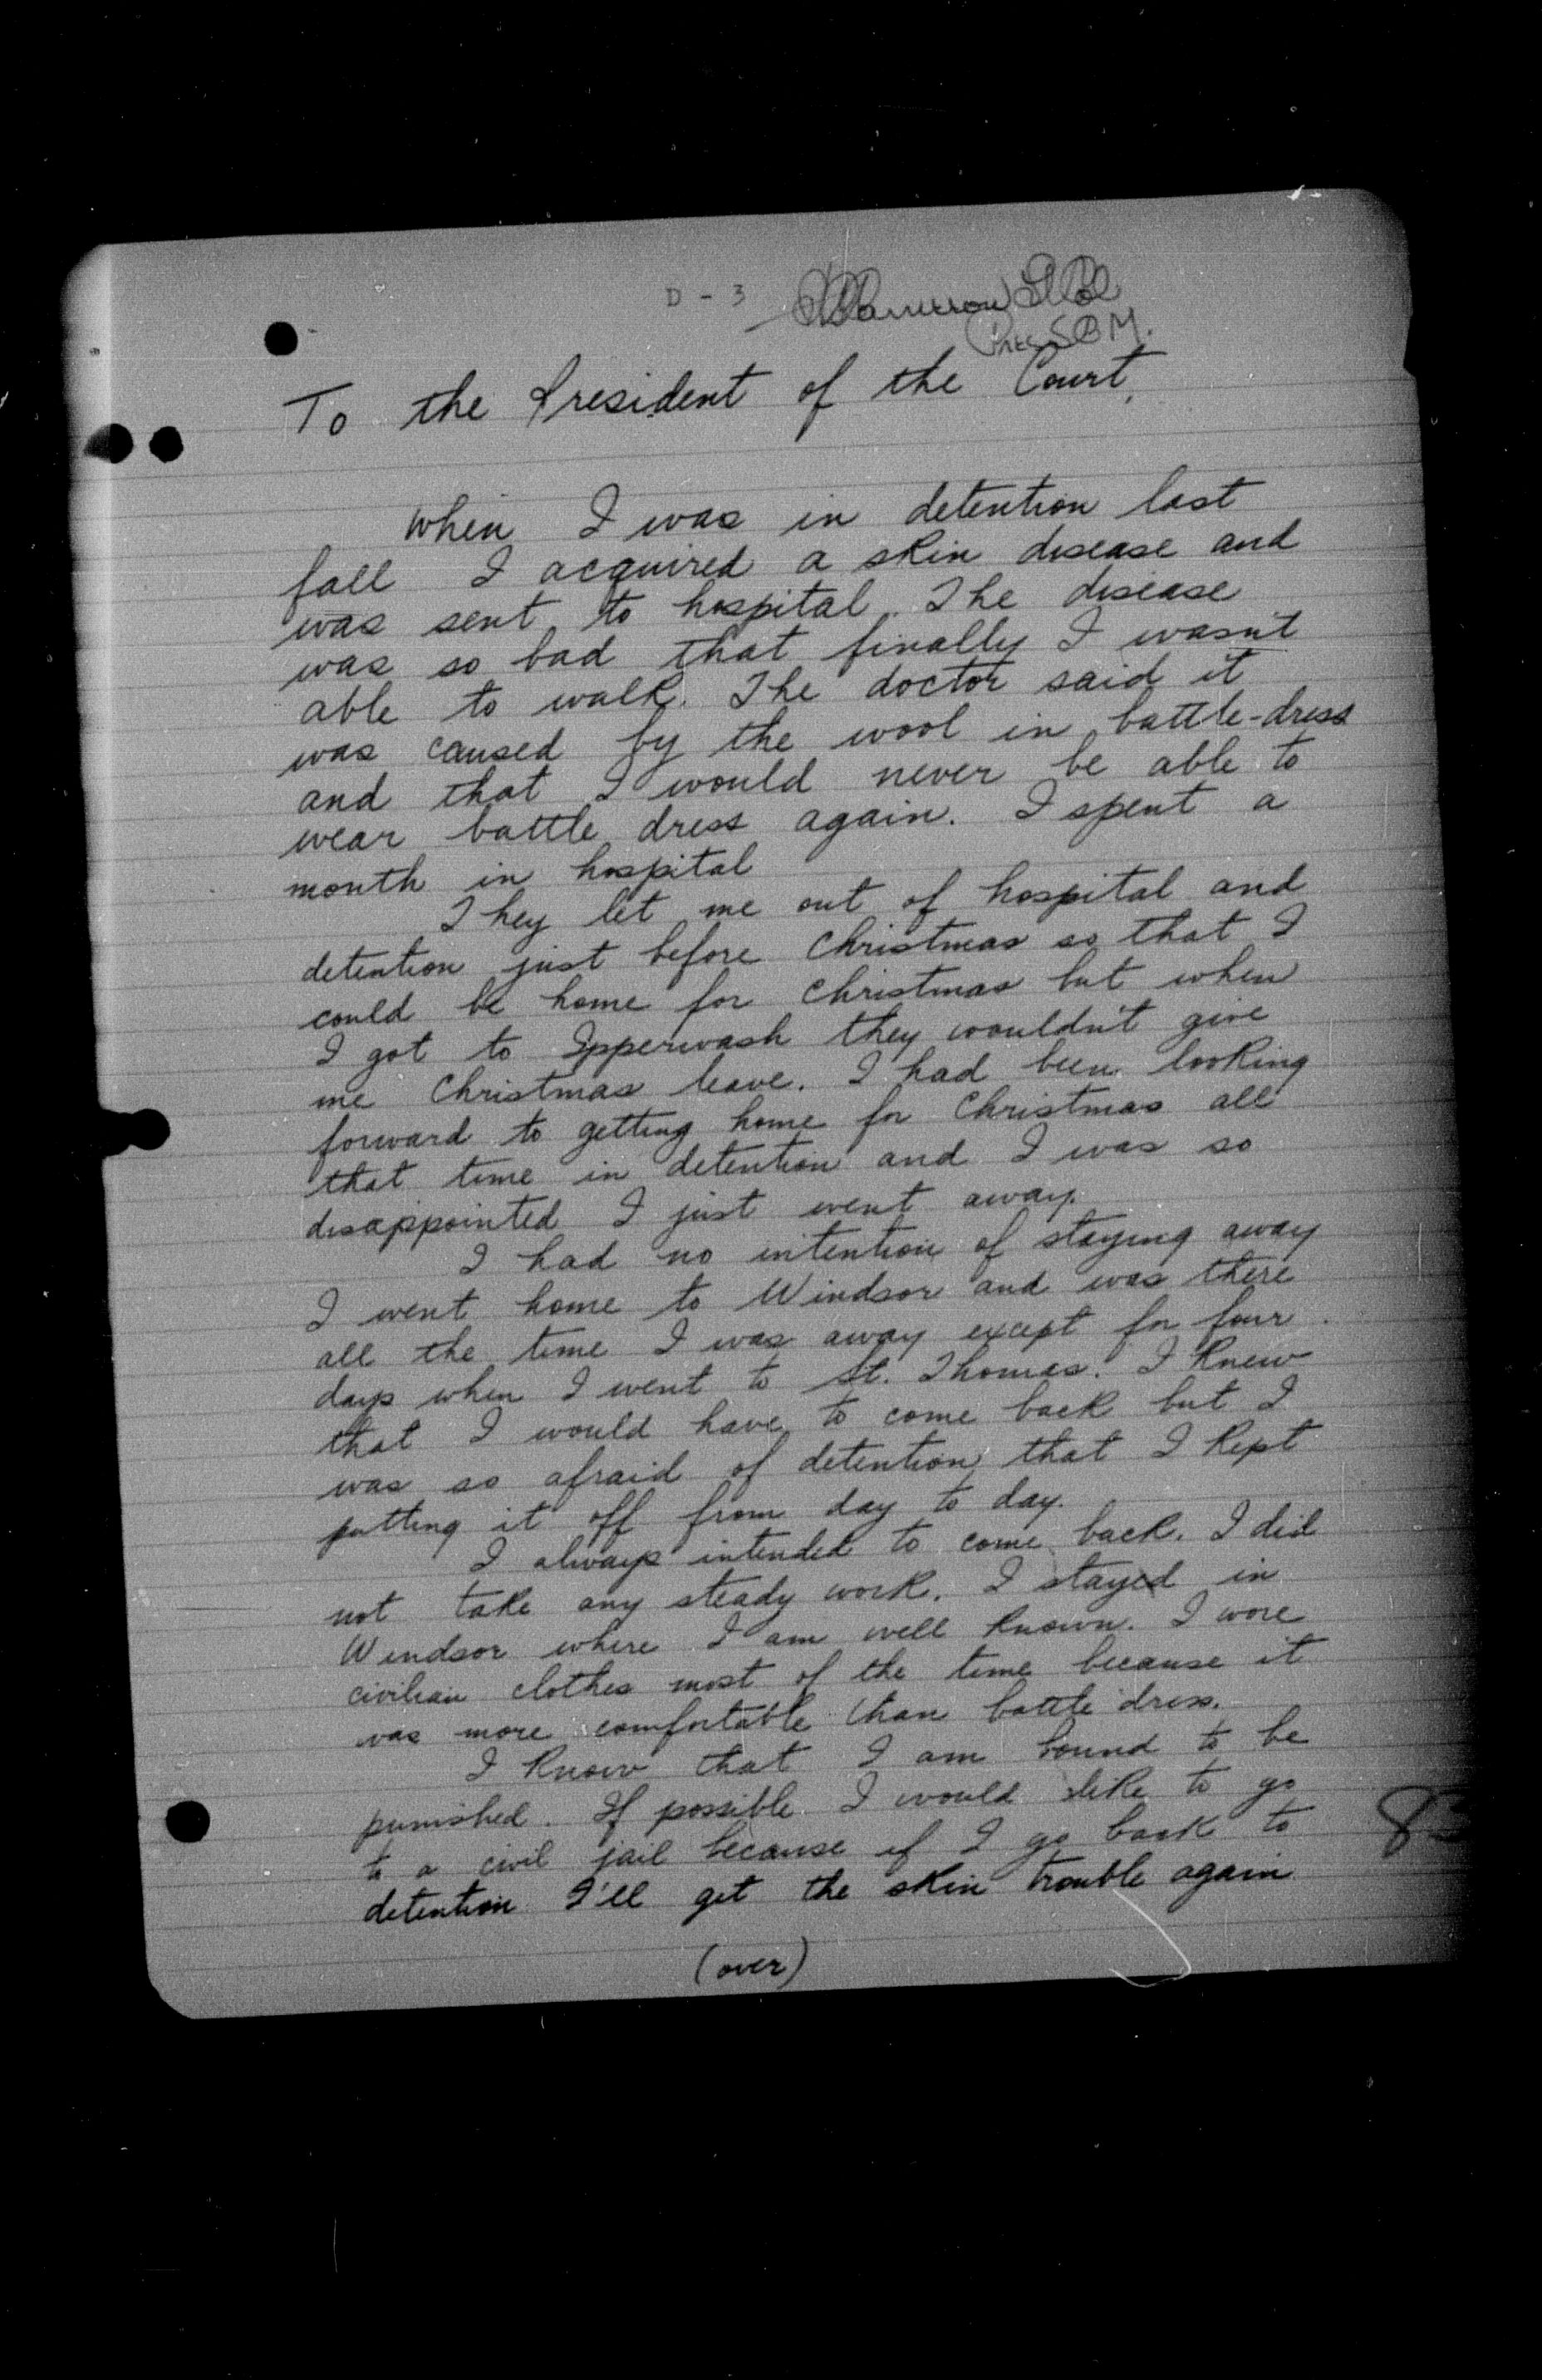 D - 3
Pres SCM.
To the President of the Court,
When I was in detention last
fall I acquired a skin disease and
was sent to hospital. The disease
was so bad that finally I wasn't
able to walk. The doctor said it
was caused by the wool in battle-dress
and that I would never be able to
wear battle dress again. I spent a
month in hospital
They let me out of hospital and
detention just before Christmas so that I
could be home for Christmas but when
I got to Ipperwash they wouldn't give
me Christmas leave. I had been looking
forward to getting home for Christmas all
that time in detention and I was so
disappointed I just went away.
I had no intention of staying away
I went home to Windsor and was there
all the time I was away except for four
days when I went to St. Thomas. I knew
that I would have to come back but I
was so afraid of detention that I kept
putting it off from day to day.
I always intended to come back. I did
not take any steady work. I stayed in
Windsor where I am well known. I wore
civilian clothes most of the time because it
was more comfortable than battle dress.
I know that I am bound to be
punished. If possible I would like to go
to a civil jail because if I go back to
detention I'll get the skin trouble again
(over)